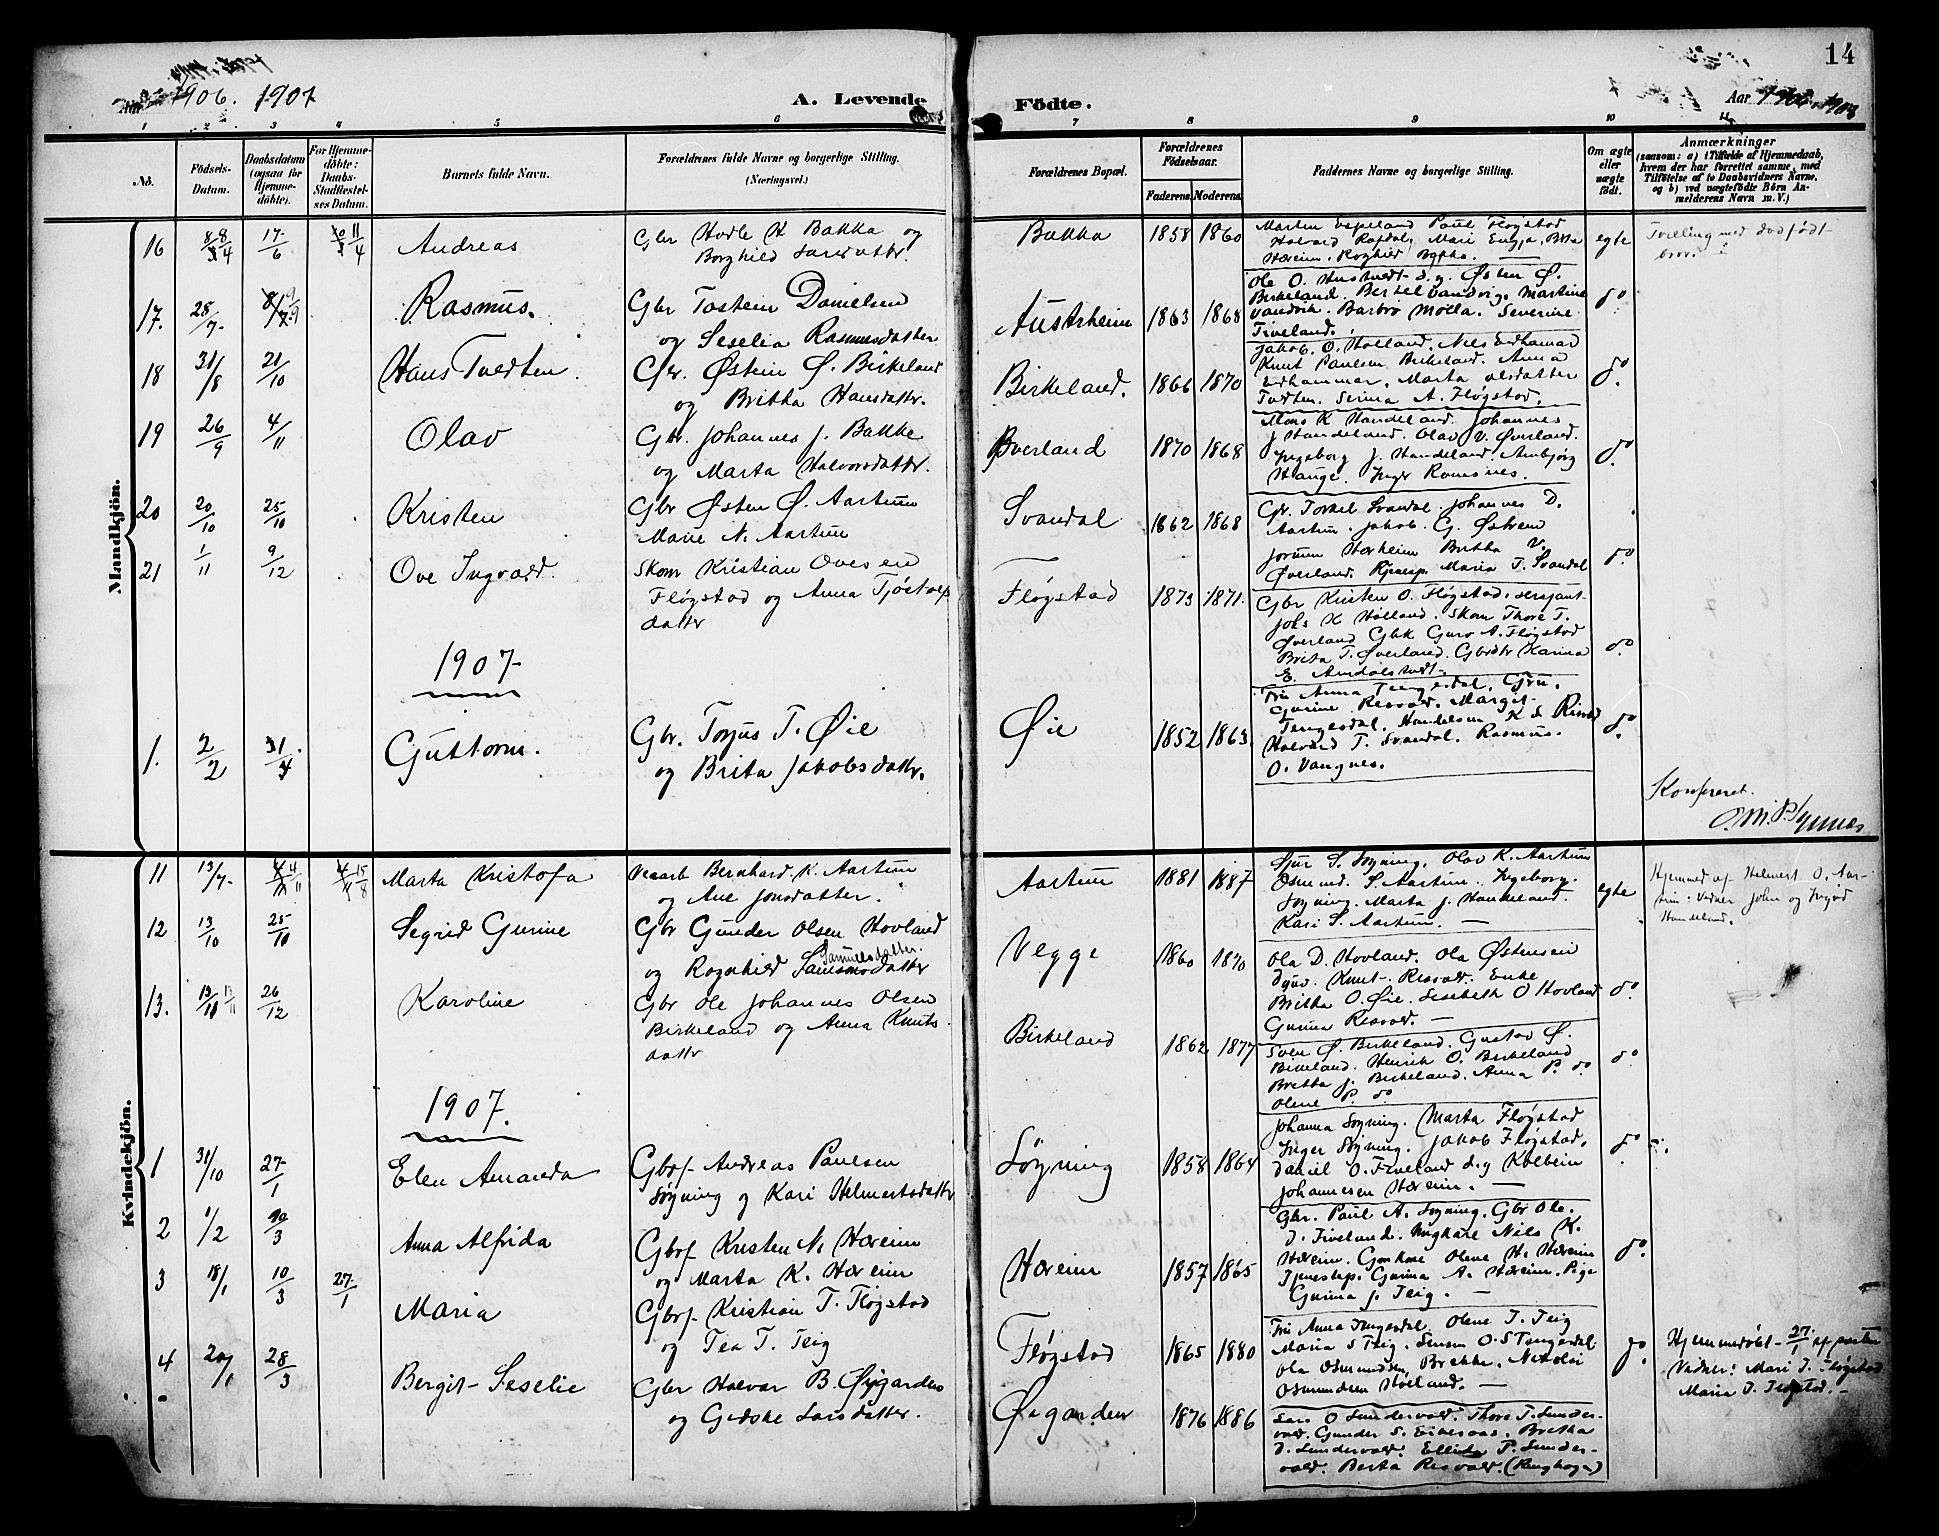 14
Aar 1906. 1907
A. Levende
Födte.
Aar 1906. 1907
1 2 3 4 5 6 7 8 9 10 11
No.
Födsels-
Datum.
Daabsdatum
(ogsaa for
Hjemme-
döbte).
For Hjemme-
döbte:
Daabs-
Stadfæstel-
ses Datum.
Barnets fulde Navn.
Forældrenes fulde Navne og borgerlige Stilling.
(Næringsvei.)
Forældrenes Bopæl.
Forældrenes
Födselsaar.
Faderens. Moderens.
Faddernes Navne og borgerlige Stilling.
Om ægte
eller
uægte
födt.
Anmærkninger
(saasom: a) i Tilfælde af Hjemmedaab,
hvem der har forrettet samme, med
Tilföielse af to Daabsvidners Navne,
og b) ved uægtefödte Börn An-
melderens Navn m. V.)
Mandkjön.
16 8/4 17/6 11/4 Andreas
Gbr Hodle K Bakka og
Borghild Larsdattr.
Bakka 1858 1860
Marten Espeland Paul Fløgstad
Halvard Mari
egte
Tvilling med dødfødt
bror.
17. 28/7 Rasmus.
Gbr Tostein Danielsen
og Seselia Rasmusdatter
Austrheim 1863 1868
Ole O. Østen Ø.
Birkeland. Bertel Vandvig, Martine
Vandvik. Barbro Molla. Severine
Fiveland.
do
18 31/8 21/10 Hans Tvedten
Gbr. Østein Ø. Birkeland
og Britha Hansdattr.
Birkeland. 1866 1870
Jakob. O. Holland. Nils Endhamar
Knut Paulsen Birkeland. Anna
Endhammer. Marta Olsdatter
Tvedten. Serina A. Fløgstad.
do
19 26/9 4/11 Olav
Gbr. Johannes J. Bakke
og Marta Halvorsdattr.
Øverland 1870 1868
Mons K Handeland. Johannes
J Handeland. Olav V. Øverland.
Ingeborg J. Handeland. Ambjørg
Hauge. Inger Ramsnes.
do
20 20/10 25/10 Kristen
Gbr Østen Ø. Aartun
Marie N. Aartun
Svandal 1862 1868
Gbr. Torkel Svandal. Johannes D.
Aartun. Jakob G. Østrem
Jorunn Hæreim Britha V.
Øverland. Tjenesp. Maria T. Svandal
do
21 1/11 9/12 Ove Ingvald.
Skom Kristian Ovesen
Fløgstad og Anna Tjøstolfs
datter
Fløgstad 1873 1871.
Gbr Kristen O. Fløgstad, sersjant
Johs K Holland. Skom Thore T.
Øverland Gbk Guro A. Fløgstad
Brita T. Øverland. Gbrdtr Karina
E. Amdalstvedt
do
1907
1. 2/2 Guttorm.
Gbr. Torjus T. Øie
og Brita Jakobsdattr.
Øie 1852 1863.
Fru Anna Tengesdal. Gbru.
Gurine Resvold. Margit
Tengesdal. Handelsm K
Halvard T. Svandal. Rasmus.
O. Vangnes.
do
Konfereret.
Kvindekjön.
11 13/7 Marta Kristofa
Veiarb Bernhard K. Aartun
og Ane Jonsdatter.
Aartun 1881 1887
Sjur S. Søgning. Olav K. Aartun
Osmund. S. Aartun. Ingeborg.
Søgning. Marta J. Handeland.
Kari S. Aartun. —
egte
Hjemmed af Helmert O. Aar-
tun: Vidner John og Ingvd
Handeland.
12 13/10 25/10 Segrid Gurine
Gbr Gunder Olsen Hovland
og Ragnhild Samuelsdatter.
Vegge 1860 1870
Ola D. Hovland. Ola Østensen
Knut Resvold. Enke
Britha O. Øie. Sesebeth O Hovland
Gurina Resvold. —
do
13. 13/11 26/12 Karoline
Gbr Ole Johannes Olsen
Birkeland og Anna Knuts-
dattr
Birkeland 1862 1877
Sven Ø. Birkeland. Gustav Ø.
Birkeland. Henrik O. Birkeland
Bretha J. Birkeland. Anna P. do
Olene P. do
do
1907.
1 31/10 27/1 Elen Amanda
Gbr. Andreas Paulsen
Søgning og Kari Helmertsdattr
Søgning 1858 1864
Johanna Søgning. Marta Fløgstad
Inger Søgning. Jakob Fløgstad.
Daniel O. Fiveland s.g Kolbein
Johannesen Hæreim. —
do
2 1/2 10/3 Anna Alfrida
Gbr. Kristen N. Hæreim
og Marta K. Hæreim
Hæreim 1857 1865
Gbr. Paul A. Søgning. Gbr Ole.
D. Fiveland. Ungkare Nils K.
Hæreim. Gbrkone Olene H. Hæreim
Tjenestep. Gurina A. Hæreim. Pige
Gurina J. Teig. —
do
3 18/1 10/3 27/1 Maria
Gbr. Kristian T. Fløgstad
og Tea T. Teig
Fløgstad 1865 1880
Fru Anna Tengesdal. Olene T. Teig
Maria S Teig. Simon O. S Tengesdal
Ola Osmundsen Brekke. Nikolai
Osmundsen Hoveland. —
do
Hjemmedøbt 27/1 af
Vidner: Mari T. Fløgstad
Maria T.
4 20/1 28/3 Bergit Seselie
Gbr Halvar B. Øigarden
og Gidske Larsdatter.
Øigarden 1876 1886
Lars O Sundervold. Thore T. Sunder-
vold. Gunder S. Eikeraas. Bretha
D. Sundervold. Ellida T. Sunder-
vold. Berta Resvold.